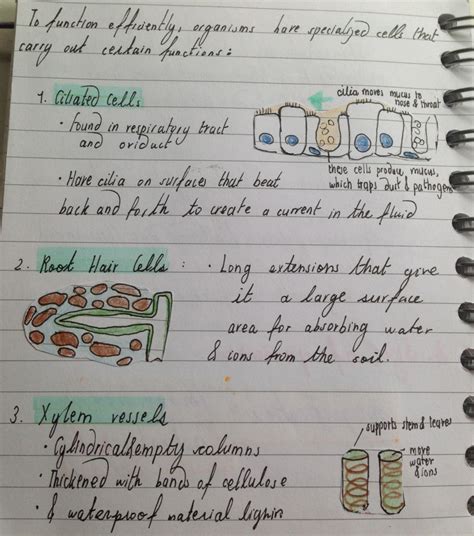 To function efficiently, organisms have specialized cells that
carry out certain functions:
1. Ciliated Cells
cilia moves mucus to
nose & throat
• found in respiratory tract
and oviduct
these cells produce mucus,
which traps dust & pathogens
• Have cilia on surfaces that beat
back and forth to create a current in the fluid
2. Root Hair Cells :
• Long extensions that give
it a large surface
area for absorbing water
& ions from the soil.
3. Xylem vessels
supports stem & leaves
• Cylindrical & empty columns
move
water
& ions
• Thickened with bands of cellulose
• & waterproof material lignin